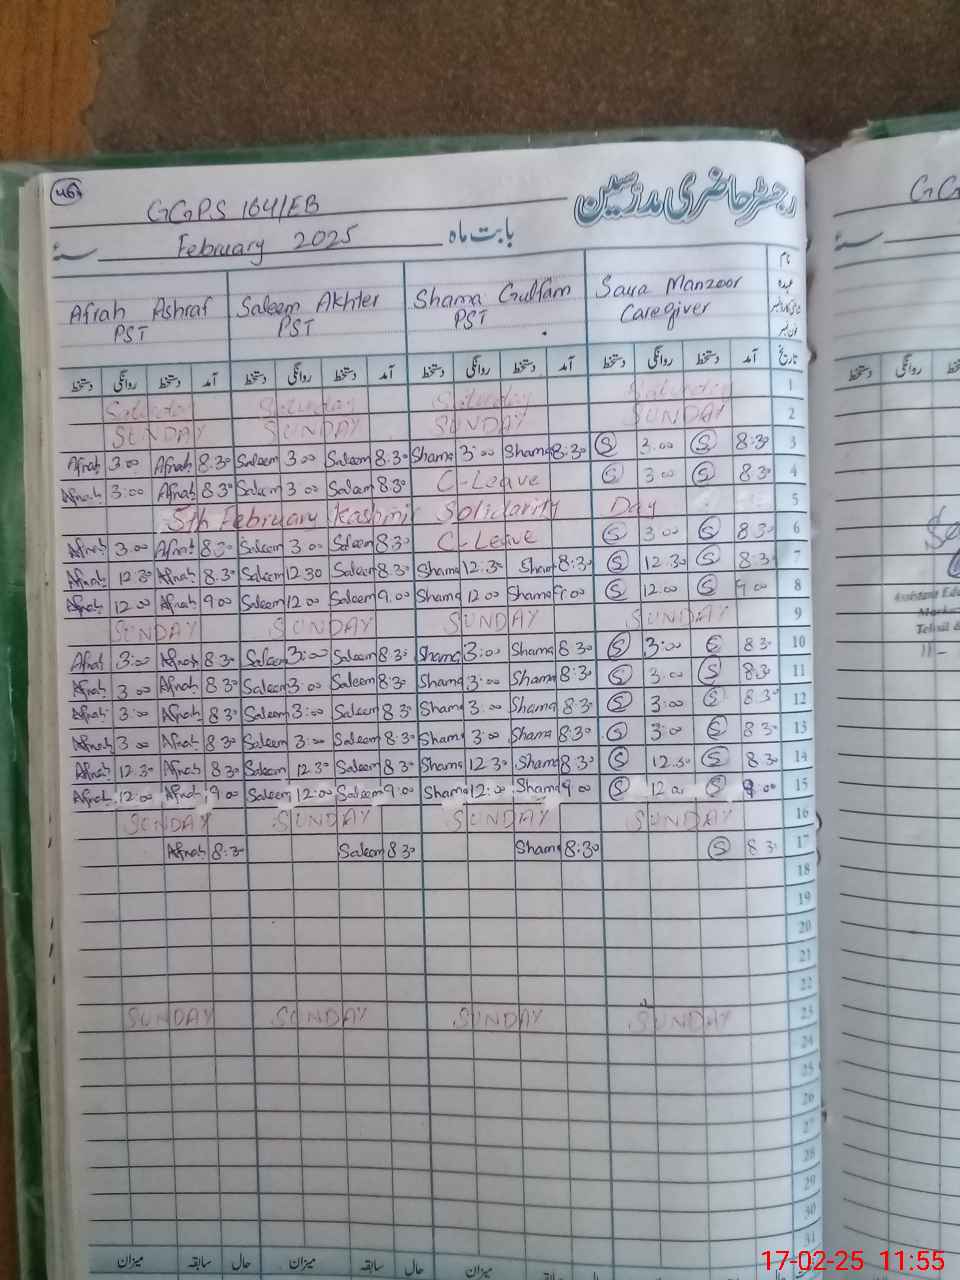 467
GGPS 164/EB
رجسٹر حاضری مدرسین
February 2025 بابت ماہ سنہ
نام
عہدہ
Afrah Ashraf Saleem Akhter Shama Gulfam Saura Manzoor
PST PST PST Caregiver
دستخط روانگی دستخط آمد دستخط روانگی دستخط آمد دستخط روانگی دستخط آمد دستخط روانگی دستخط آمد تاریخ
Saturday Saturday Saturday Saturday 1
SUNDAY SUNDAY SUNDAY SUNDAY 2
Afrah 3:00 Afrah 8.30 Saleem 3 00 Saleem 8.30 Shama 3:00 Shama 8.30 S 3.00 S 8:30 3
Afrah 3:00 Afrah 8 30 Saleem 3 00 Saleem 8.30 C-Leave S 3 00 S 8.30 4
5th February Kashmir Solidarity Day 5
Afrah 3.00 Afrah 8:30 Saleem 3.00 Saleem 8.30 C-Leave S 3 00 S 8 30 6
Afrah 12.30 Afrah 8.30 Saleem 12.30 Saleem 8.30 Shama 12.30 Sham 8.30 S 12.30 S 8.30 7
Afrah 12.00 Afrah 9 00 Saleem 12.00 Saleem 9.00 Shama 12 00 Shama 9.00 S 12.00 S 9 00 8
SUNDAY SUNDAY SUNDAY SUNDAY 9
Afrah 3:00 Afrah 8.30 Saleem 3:00 Saleem 8.30 Shama 3:00 Shama 8.30 S 3:00 S 8 30 10
Afrah 3 00 Afrah 8.30 Saleem 3 00 Saleem 8.30 Shama 3:00 Shama 8.30 S 3.00 S 8.30 11
Afrah 3:00 Afrah 8.30 Saleem 3:00 Saleem 8.30 Shama 3:00 Shama 8.30 S 3:00 S 8.30 12
Afrah 3 00 Afrah 8.30 Saleem 3:00 Saleem 8.30 Shama 3:00 Shama 8.30 S 3:00 S 8 30 13
Afrah 12.30 Afrah 8.30 Saleem 12.30 Saleem 8.30 Shama 12.30 Shama 8.30 S 12.30 S 8.30 14
Afrah 12:00 Afrah 9 00 Saleem 12:00 Saleem 9:00 Shama 12:00 Shama 9 00 S 12.00 S 9:00 15
SUNDAY SUNDAY SUNDAY SUNDAY 16
Afrah 8:30 Saleem 8 30 Shama 8:30 S 8 30 17
18
19
20
21
22
SUNDAY SUNDAY SUNDAY SUNDAY 23
24
25
26
27
28
29
30
31
میزان سابقہ حال میزان سابقہ حال میزان سابقہ
سنہ
دستخط روانگی
17-02-25 11:55